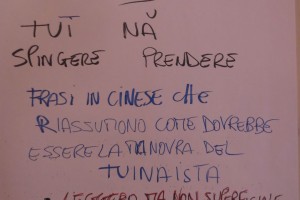 TUĪ NĂ
SPINGERE PRENDERE
FRASI IN CINESE CHE
RIASSUMONO COME DOVREBBE
ESSERE LA MANOVRA DEL
TUINAISTA
• LEGGERO MA NON SUPERFICI